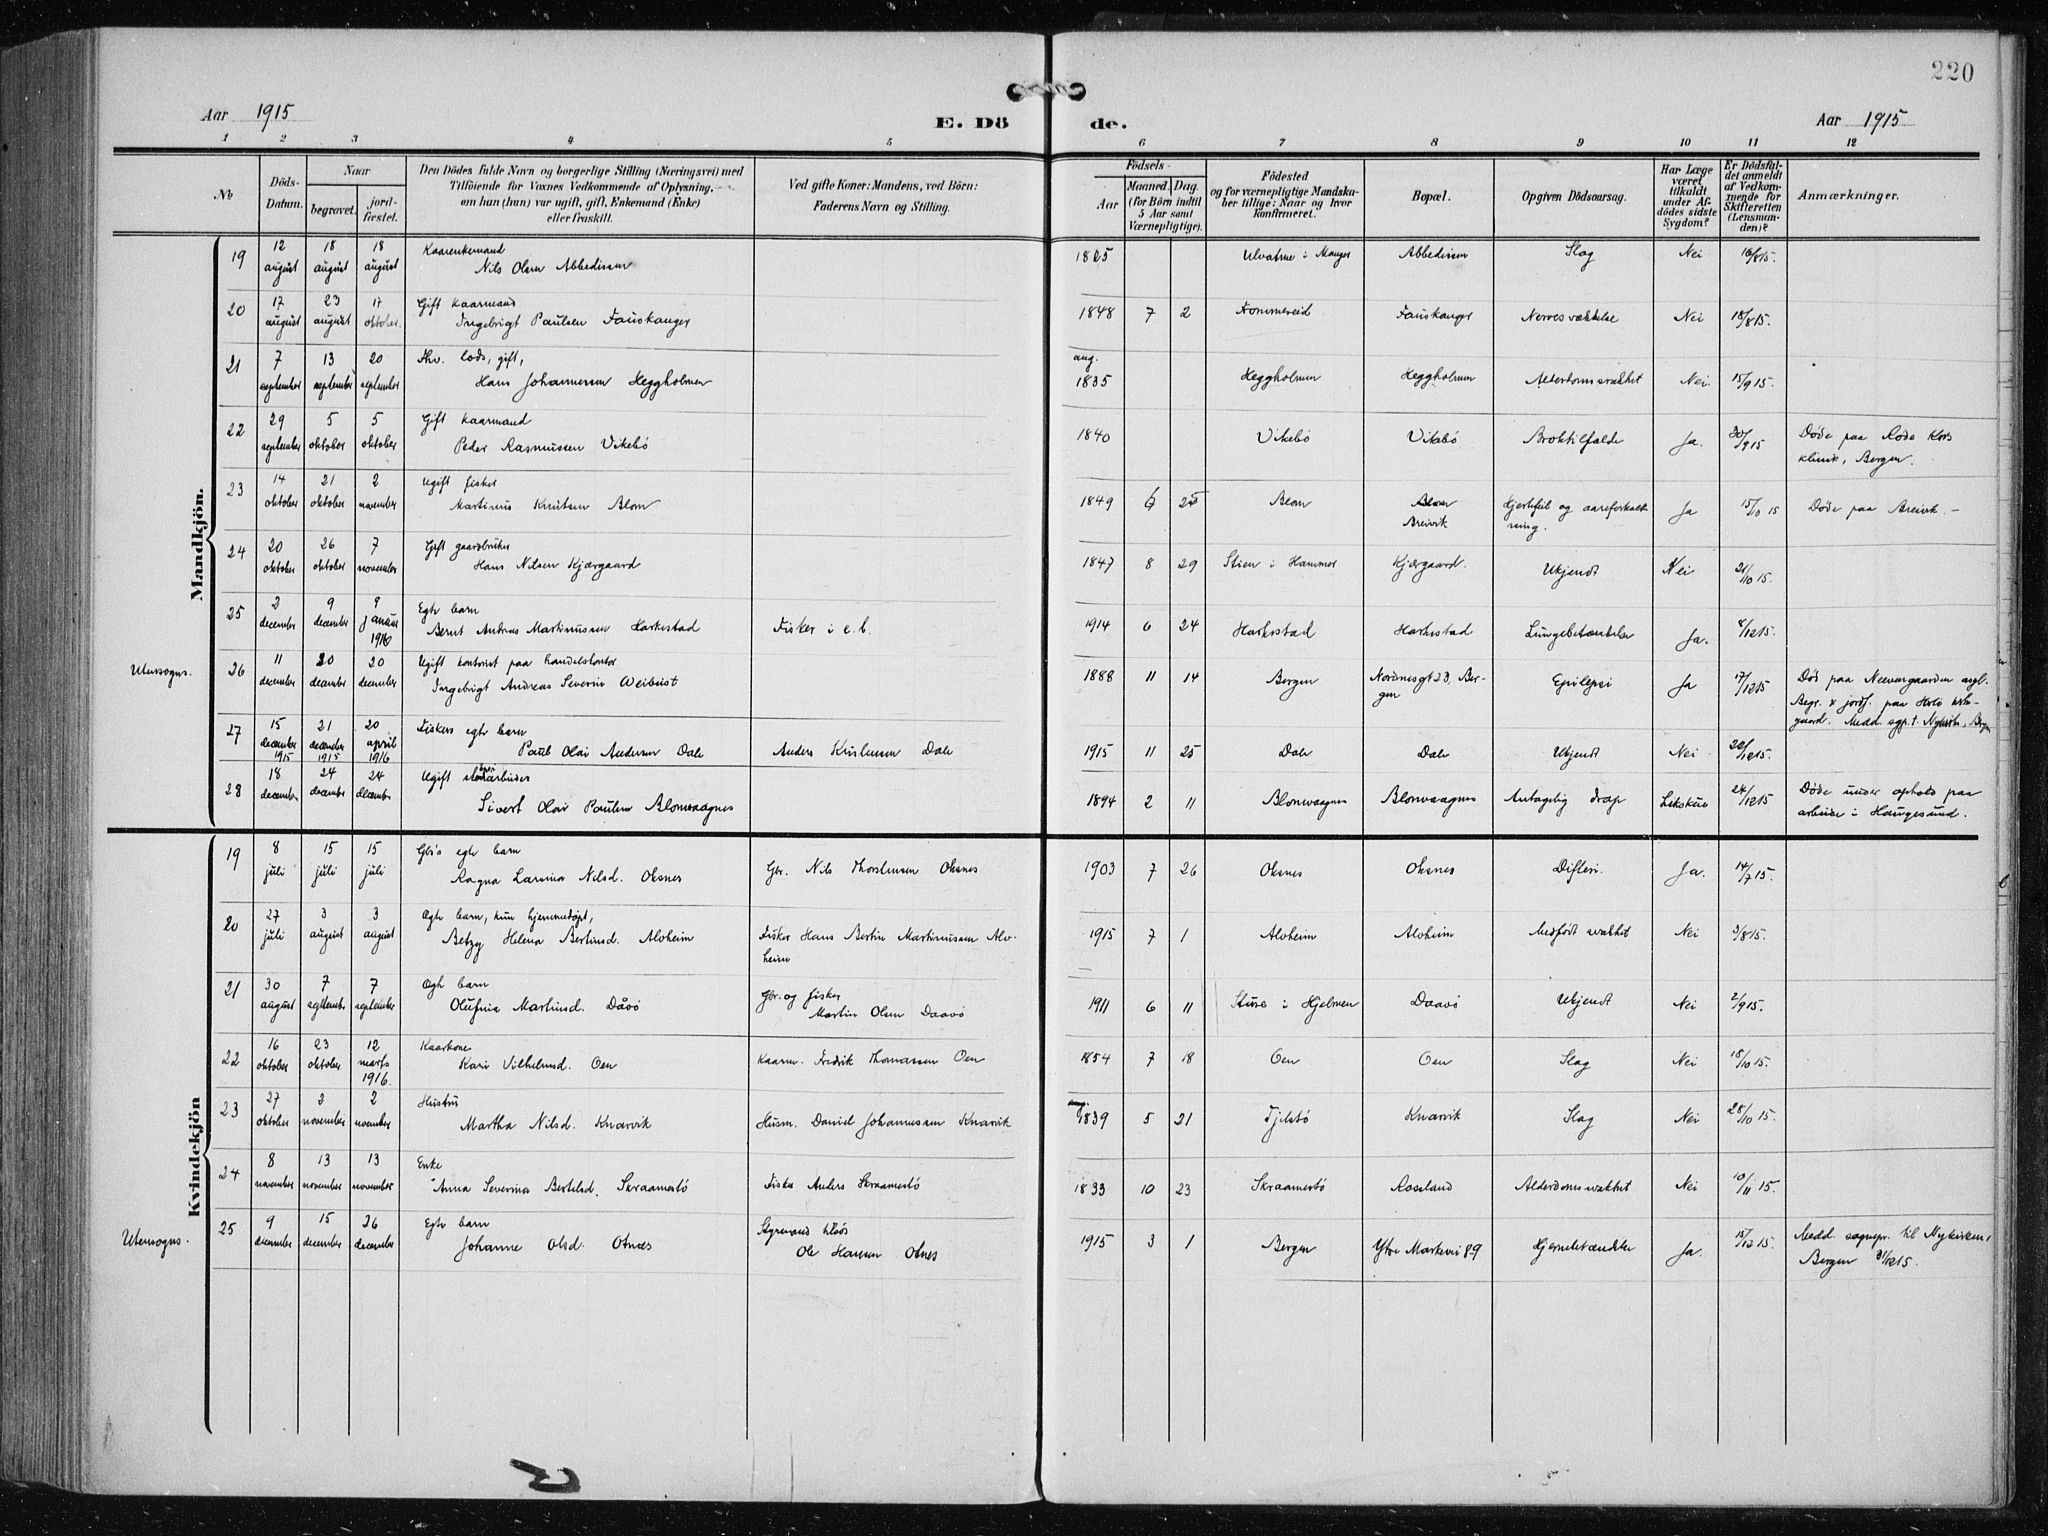 220
Aar 1915
E. Dö de.
Aar 1915
1 2 3 4 5 6 7 8 9 10 11 12
No
Döds-Datum.
Naar
begravet.
jord-fæstet.
Den Dödes fulde Navn og borgerlige Stilling (Næringsvei) med
Tilföiende for Voxnes Vedkommende af Oplysning,
om han (hun) var ugift, gift, Enkemand (Enke)
eller fraskilt.
Ved gifte Koner: Mandens, ved Börn:
Faderens Navn og Stilling.
Födsels-
Aar
Maaned. Dag.
(for Börn indtil
5 Aar samt
Værnepligtige).
Födested
og for værnepligtige Mandska-
ber tillige: Naar og hvor
konfirmeret.
Bopæl.
Opgiven Dödsaarsag.
Har Læge
været
tilkaldt
under Af-
dödes sidste
Sygdom?
Er Dödsfal-
det anmeldt
af Vedkom-
mende for
Skifteretten
(Lensman-
den)?
Anmærkninger.
Mandkjön.
19 12 august 18 august 18 august Kaarenkemand
Nils Olsen Abbedissen 1825 Ulvatne i Manger Abbedissen Slag Nei 16/8 15.
20 17 august 23 august 17 oktober. Gift kaarmand
Ingebrigt Paulsen Fauskanger 1848 7 2 Tommereid Fauskanger Nervesvækkelse Nei 18/8 15.
21 7 september 13 september 20 september Fhv. lods, gift,
Hans Johannessen Heggholmen aug. 1835 Heggholmen Heggholmen Alderdomssvakhet Nei. 15/9 15.
22 29 september 5 oktober 5 oktober Gift kaarmand
Peder Rasmussen Vikebö 1840 Vikebö Vikebö Broktilfælde Ja. 30/9 15 Døde paa Røde Kors
klinik, Bergen.
23 14 oktober 21 oktober 2 november Ugift fisker
Martinus Knutsen Blom 1849 6 25 Blom Blom
Breivik Hjertefeil og aareforkalk-
ning. Ja 15/10 15 Døde paa Breivik. -
24 20 oktober 26 oktober 7 november Gift gaardbruker
Hans Nilsen Kjærgaard 1847 8 29 Stien i Hammer Kjærgaard. Ukjendt Nei 21/10 15.
25 2 december 9 december 9 januar 1916 Egte barn
Bernt Andreas Martinussen Harkestad Fisker i e.b. 1914 6 24 Harkestad Harkestad Lungebetændelse Ja. 8/12 15.
Utensogns. 26 11 december 20 december 20 december Ugift kontorist paa handelskontor
Ingebrigt Andreas Severin Weibust 1888 11 14 Bergen Nordnesgt 23, Ber-
gen Epilepsi Ja 17/12 15 Død paa Neevengaarden asyl.
Begr. & jordf. paa Herlö kirke-
gaard. Medd. sgpr. t. Nykirken, Bergen
27 15 december 1915 21 december 1915 20 april 1916 Fiskers egte barn
Paul Olai Andersen Dale Anders Kristensen Dale 1915 11 25 Dale Dale Ukjendt Nei. 22/12 15.
28 18 december 24 december 24 december Ugift
Sivert Olai Paulsen Blomvaagnes 1894 2 11 Blomvaagnes Blomvaagnes Antagelig drap Likskue 24/12 15 Døde under ophold paa
arbeide i Haugesund.
Kvindekjön
19 8 juli 15 juli 15 juli Gbr's egte barn
Ragna Larsina Nilsd. Oksnes Gbr. Nils Thorstensen Oksnes 1903 7 26 Oksnes Oksnes Difteri. Ja. 14/7 15.
20 27 juli 3 august 3 august Egte barn, kun hjemmedøpt,
Betzy Helena Bertinsd. Alvheim Fisker Hans Bertin Martinussen Alv-
heim 1915 7 1 Alvheim Alvheim Medfødt svakhet Nei 3/8 15.
21 30 august 7 september 7 september Egte barn
Olufnia Martinsd. Dåvö Gbr. og fisker
Martin Olsen Daavö 1911 6 11 Sture i Hjelmen Daavö Ukjendt Nei 2/9 15.
22 16 oktober 23 oktober 12 marts 1916. Kaarkone
Kari Vilhelmsd. Oen Kaarm. Fredrik Thomassen Oen 1854 7 18 Oen Oen Slag Nei 18/10 15.
23 27 oktober 2 november 2 november Hustru
Martha Nilsd. Knarvik Husm. Daniel Johannessen Knarvik 1839 5 21 Tjelstö Knarvik Slag Nei 28/10 15.
24 8 november 13 november 13 november Enke
Anna Severina Bertelsd. Skraamestö Fisker Anders Skraamestö 1833 10 23 Skraamestö Rossland Alderdomssvakhet Nei 10/11 15.
Utensogns. 25 9 december 15 december 26 december Egte barn
Johanne Olsd. Otnæs Styrmand tilsös
Ole Hansen Otnes 1915 3 1 Bergen Ytre Markevei 89 Hjernebetændelse Ja. 15/12 15. Medd. sognepr. til Nykirken,
Bergen 31/12 15.